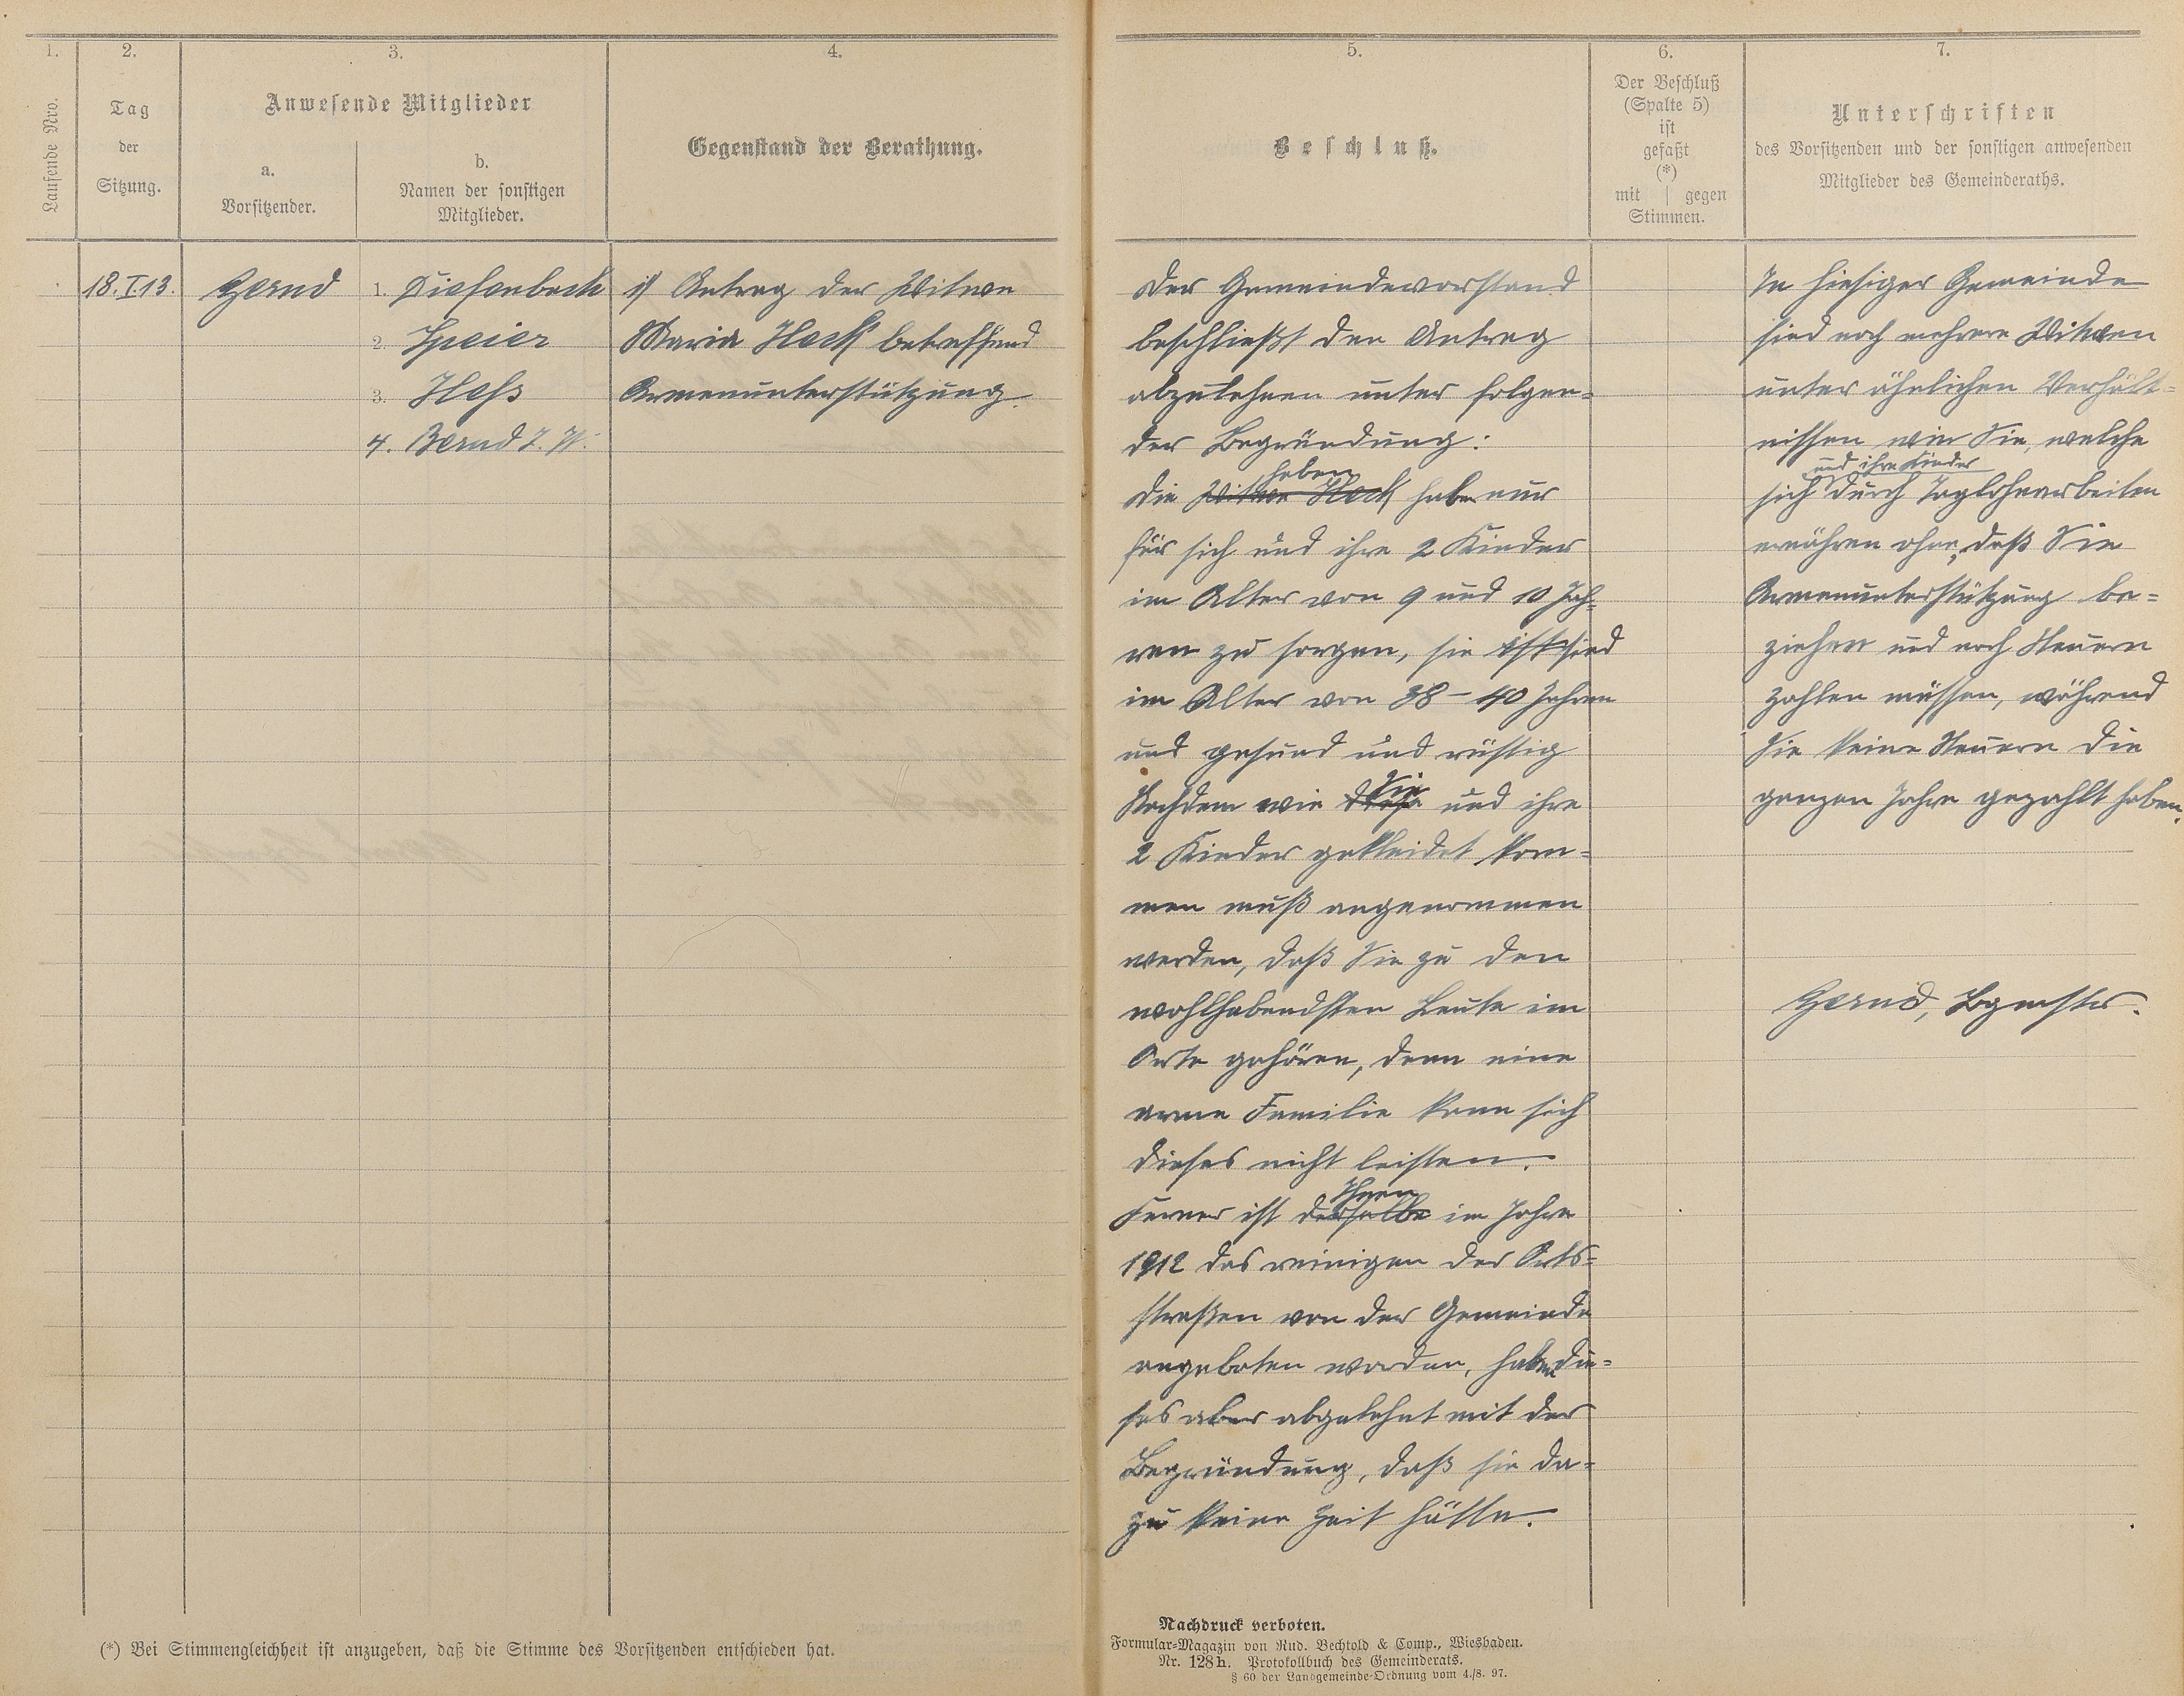 1.
2.
3.
4.
Laufende Nro.
Tag
der
Sitzung.
Anwesende Mitglieder
a.
Vorsitzender.
b.
Namen der sonstigen
Mitglieder.
Gegenstand der Berathung.
18.I.13.
Bernd
1. Diefenbach
2. Speier
3. Heß
4. Bernd I. W.
1) Antrag der Witwe
Maria Heck betreffend
Armenunterstützung.
(*) Bei Stimmengleichheit ist anzugeben, daß die Stimme des Vorsitzenden entschieden hat.
5.
6.
7.
Beschluß.
Der Beschluß
(Spalte 5)
ist
gefaßt
(*)
mit | gegen
Stimmen.
Unterschriften
des Vorsitzenden und der sonstigen anwesenden
Mitglieder des Gemeinderaths.
Der Gemeindevorstand
beschließt den Antrag
abzulehnen unter folgen-
der Begründung:
haben
Die Witwe Heck haben nur
für sich und ihre 2 Kinder
im Alter von 9 und 10 Jah-
ren zu sorgen, sie ist sind
im Alter von 38 - 40 Jahren
und gesund und rüstig
Sie
Nachdem wie diese und ihre
2 Kinder gekleidet kom-
men muß angenommen
werden, daß Sie zu den
wohlhabendsten Leute im
Orte gehören, denn eine
arme Familie kann sich
dieses nicht leisten.
Ihnen
Ferner ist derselbe im Jahre
1912 das reinigen der Orts-
straßen von der Gemeinde
angeboten worden, haben die-
ses aber abgelehnt mit der
Begründung, daß sie da-
zu keine Zeit hätte.
In hiesiger Gemeinde
sind noch mehrere Witwen
unter ähnlichen Verhält-
nissen wie Sie, welche
und ihre Kinder
sich durch Taglohnarbeiten
ernähren ohne, daß Sie
Armenunterstützung be-
ziehen und noch Steuern
zahlen müssen, während
Sie keine Steuern die
ganzen Jahre gezahlt haben.
Bernd, Bgmstr.
Nachdruck verboten.
Formular-Magazin von Rud. Bechtold & Comp., Wiesbaden.
Nr. 128h. Protokollbuch des Gemeinderats.
§ 60 der Landgemeinde-Ordnung vom 4./8. 97.